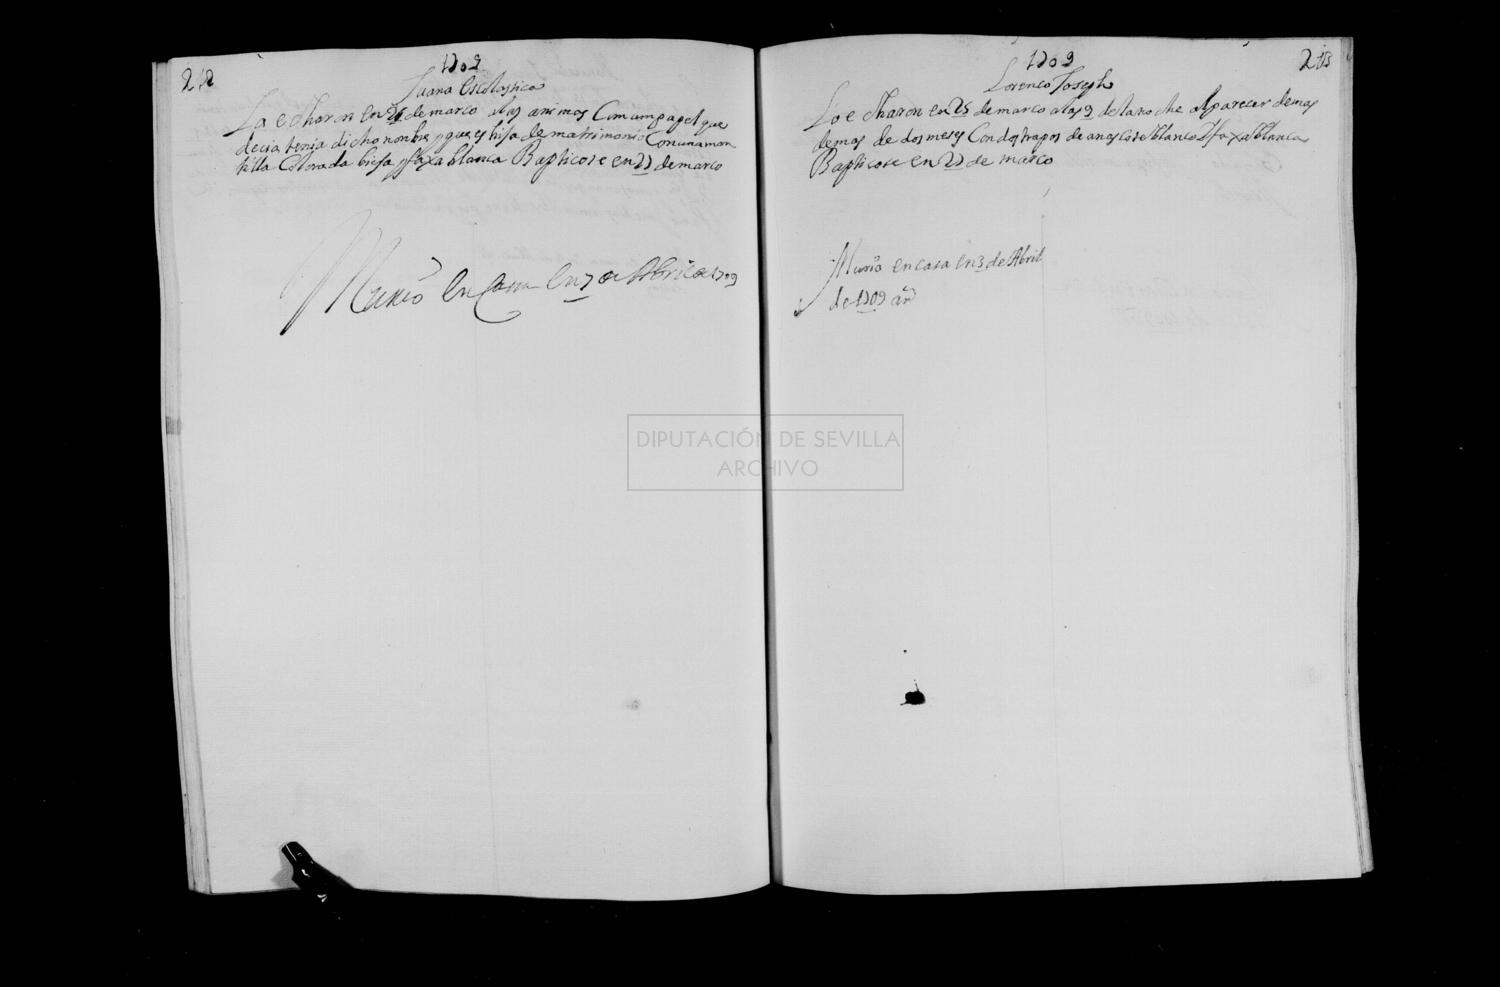 212
1709
Juana Escolastica
La echaron en 25 de março a las animas Com um papel que
decia tenia dicho nonbre y que es hija de matrimonio Con una man
tilla Colorada bieja y faxa blanca Baptiçose en 27 de março
Murió En Casa En 7 de Abril de 1709
1709
213
Lorenço Joseph
Lo echaron en 25 de março a las 9 de la noche al parecer de mas
de mas de dos meses Con dos trapos de anescote blanco Y faxa blanca
Baptiçose en 27 de março
Murió en casa en 3 de Abril
de 1709 añ
DIPUTACIÓN DE SEVILLA
ARCHIVO